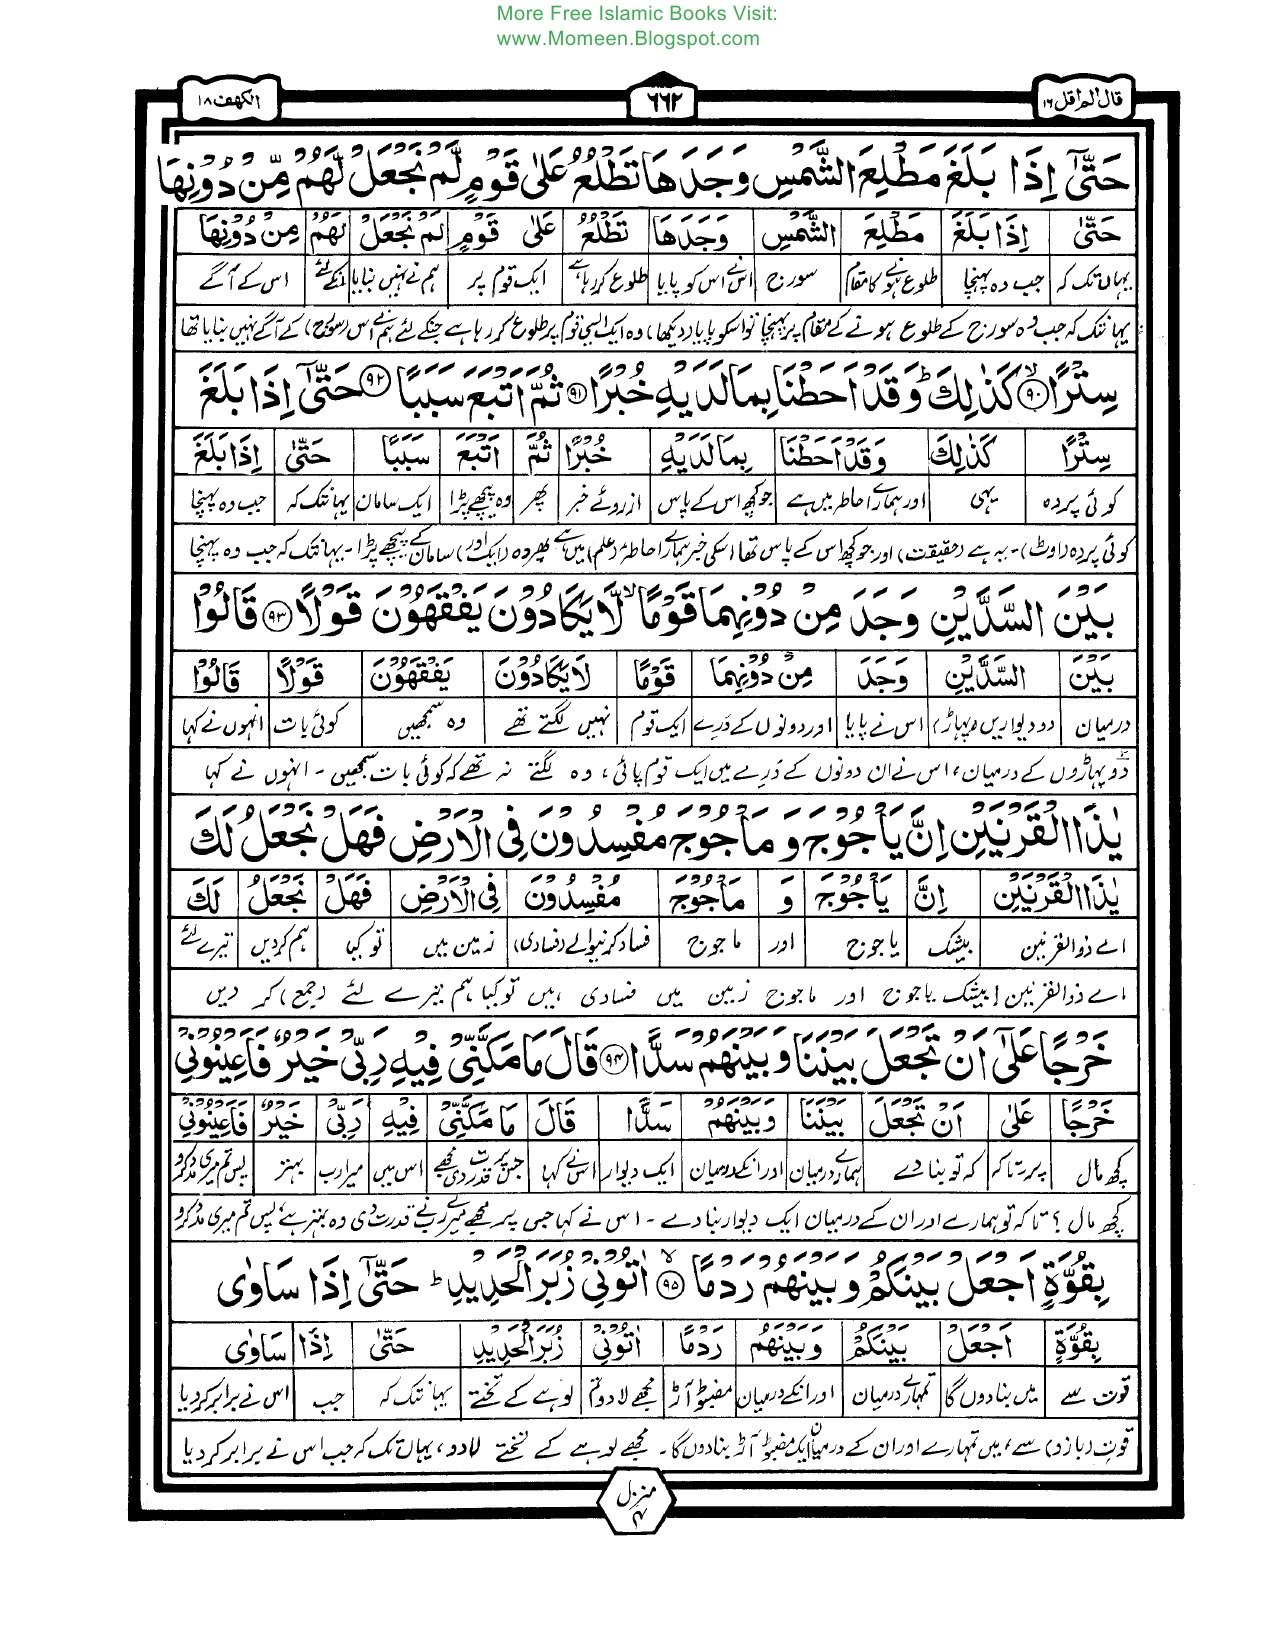 More Free Islamic Books Visit:
www.Momeen.Blogspot.com
قال الم اقل ۱۶
۶۶۲
الکھف ۱۸
حَتّٰۤى اِذَا بَلَغَ مَطْلِعَ الشَّمْسِ وَجَدَهَا تَطْلُعُ عَلٰى قَوْمٍ لَّمْ نَجْعَلْ لَّهُمْ مِّنْ دُوْنِهَا
حَتّٰى اِذَا بَلَغَ مَطْلِعَ الشَّمْسِ وَجَدَهَا تَطْلُعُ عَلٰى قَوْمٍ لَمْ نَجْعَلْ لَهُمْ مِنْ دُوْنِهَا
یہاں تک کہ جب وہ پہنچا طلوع ہونے کا مقام سورج اس نے اس کو پایا طلوع کر رہا ہے ایک قوم پر ہم نے نہیں بنایا انکے لئے اس کے آگے
یہانتک کہ جب وہ سورج کے طلوع ہونے کے مقام پر پہنچا تو اسکو پایا (دیکھا) وہ ایک ایسی قوم پر طلوع کر رہا ہے جنکے لئے ہم نے اس (سورج) کے آگے نہیں بنایا تھا
سِتْرًا ۹۰ كَذٰلِكَ ؕ وَقَدْ اَحَطْنَا بِمَا لَدَيْهِ خُبْرًا ۹۱ ثُمَّ اَتْبَعَ سَبَبًا ۹۲ حَتّٰۤى اِذَا بَلَغَ
سِتْرًا كَذٰلِكَ وَقَدْ اَحَطْنَا بِمَا لَدَيْهِ خُبْرًا ثُمَّ اَتْبَعَ سَبَبًا حَتّٰى اِذَا بَلَغَ
کوئی پردہ یہی اور ہمارے احاطہ میں ہے جو کچھ اس کے پاس از روئے خبر پھر وہ پیچھے پڑا ایک سامان یہانتک کہ جب وہ پہنچا
کوئی پردہ (اوٹ)۔ یہ ہے (حقیقت) اور جو کچھ اس کے پاس تھا اسکی خبر ہمارے احاطۂ (علم) میں ہے پھر وہ (ایک اور) سامان کے پیچھے پڑا۔ یہانتک کہ جب وہ پہنچا
بَيْنَ السَّدَّيْنِ وَجَدَ مِنْ دُوْنِهِمَا قَوْمًا ۙ لَّا يَكَادُوْنَ يَفْقَهُوْنَ قَوْلًا ۹۳ قَالُوْا
بَيْنَ السَّدَّيْنِ وَجَدَ مِنْ دُوْنِهِمَا قَوْمًا لَا يَكَادُوْنَ يَفْقَهُوْنَ قَوْلًا قَالُوْا
درمیان دو دیواریں (پہاڑ) اس نے پایا اور دونوں کے ورے ایک قوم نہیں لگتے تھے وہ سمجھیں کوئی بات انہوں نے کہا
دو پہاڑوں کے درمیان، اس نے ان دونوں کے ورے میں ایک قوم پائی، وہ لگتے نہ تھے کہ کوئی بات سمجھیں۔ انہوں نے کہا
يٰذَا الْقَرْنَيْنِ اِنَّ يَاْجُوْجَ وَ مَاْجُوْجَ مُفْسِدُوْنَ فِى الْاَرْضِ فَهَلْ نَجْعَلُ لَكَ
يٰذَا الْقَرْنَيْنِ اِنَّ يَاْجُوْجَ وَ مَاْجُوْجَ مُفْسِدُوْنَ فِى الْاَرْضِ فَهَلْ نَجْعَلُ لَكَ
اے ذوالقرنین بیشک یاجوج اور ماجوج فساد کرنیوالے (فسادی) زمین میں تو کیا ہم کر دیں تیرے لئے
اے ذوالقرنین! بیشک یاجوج اور ماجوج زمین میں فسادی ہیں تو کیا ہم تیرے لئے (جمع) کر دیں
خَرْجًا عَلٰۤى اَنْ تَجْعَلَ بَيْنَنَا وَبَيْنَهُمْ سَدًّا ۹۴ قَالَ مَا مَكَّنِّىْ فِيْهِ رَبِّىْ خَيْرٌ فَاَعِيْنُوْنِىْ
خَرْجًا عَلٰى اَنْ تَجْعَلَ بَيْنَنَا وَبَيْنَهُمْ سَدًّا قَالَ مَا مَكَّنِّىْ فِيْهِ رَبِّىْ خَيْرٌ فَاَعِيْنُوْنِىْ
کچھ مال پر۔تاکہ کہ تو بنا دے ہمارے درمیان اور انکے درمیان ایک دیوار اس نے کہا جس پر قدرت دی مجھے اس میں میرا رب بہتر پس تم میری مدد کرو
کچھ مال؟ تاکہ تو ہمارے اور ان کے درمیان ایک دیوار بنا دے۔ اس نے کہا جس پر مجھے میرے رب نے قدرت دی وہ بہتر ہے، پس تم میری مدد کرو
بِقُوَّةٍ اَجْعَلْ بَيْنَكُمْ وَبَيْنَهُمْ رَدْمًا ۙ ۹۵ اٰتُوْنِىْ زُبَرَ الْحَدِيْدِ ؕ حَتّٰۤى اِذَا سَاوٰى
بِقُوَّةٍ اَجْعَلْ بَيْنَكُمْ وَبَيْنَهُمْ رَدْمًا اٰتُوْنِىْ زُبَرَ الْحَدِيْدِ حَتّٰى اِذَا سَاوٰى
قوت سے میں بنا دوں گا تمہارے درمیان اور انکے درمیان مضبوط آڑ مجھے لا دو تم لوہے کے تختے یہانتک کہ جب اس نے برابر کر دیا
قوت (بازو) سے، میں تمہارے اور ان کے درمیان ایک مضبوط آڑ بنا دوں گا۔ مجھے لوہے کے تختے لا دو، یہاں تک کہ جب اس نے برابر کر دیا
منزل
۴